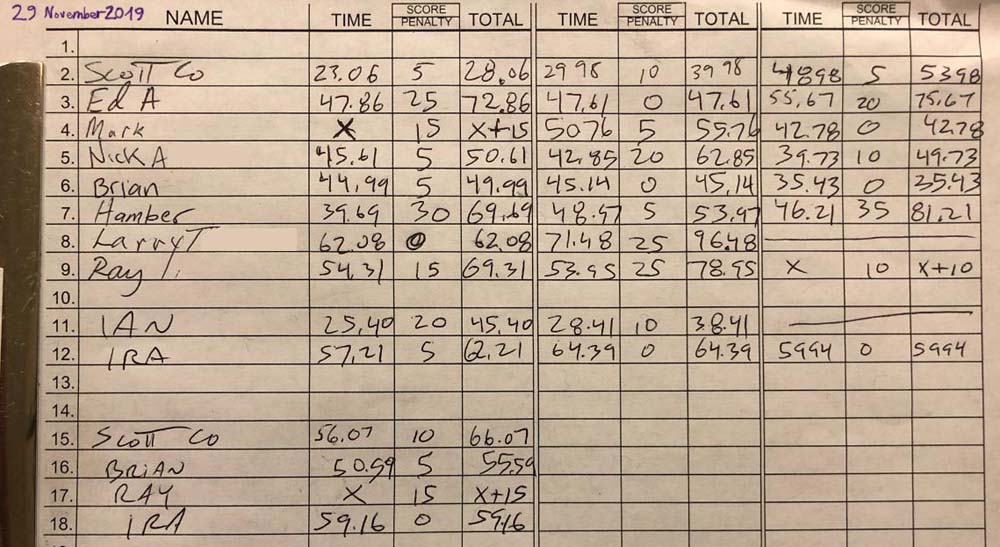 29 November 2019
NAME TIME SCORE PENALTY TOTAL TIME SCORE PENALTY TOTAL TIME SCORE PENALTY TOTAL
1.
2. Scott Co 23.06 5 28.06 29 98 10 39 98 48 98 5 53 98
3. Ed A 47.86 25 72.86 47.61 0 47.61 55.67 20 75.67
4. Mark X 15 X+15 50 76 5 55.76 42.78 0 42.78
5. Nick A 45.61 5 50.61 42.85 20 62.85 39.73 10 49.73
6. Brian 44.99 5 49.99 45.14 0 45.14 35.43 0 35.43
7. Hamber 39.69 30 69.69 48.97 5 53.97 46.21 35 81.21
8. Larry T 62.08 0 62.08 71.48 25 96.48
9. Ray T. 54.31 15 69.31 53.95 25 78.95 X 10 X+10
10.
11. IAN 25.40 20 45.40 28.41 10 38.41
12. IRA 57.21 5 62.21 64.39 0 64.39 59 94 0 59 94
13.
14.
15. Scott Co 56.07 10 66.07
16. BRIAN 50.59 5 55.59
17. RAY X 15 X+15
18. IRA 59.16 0 59.16